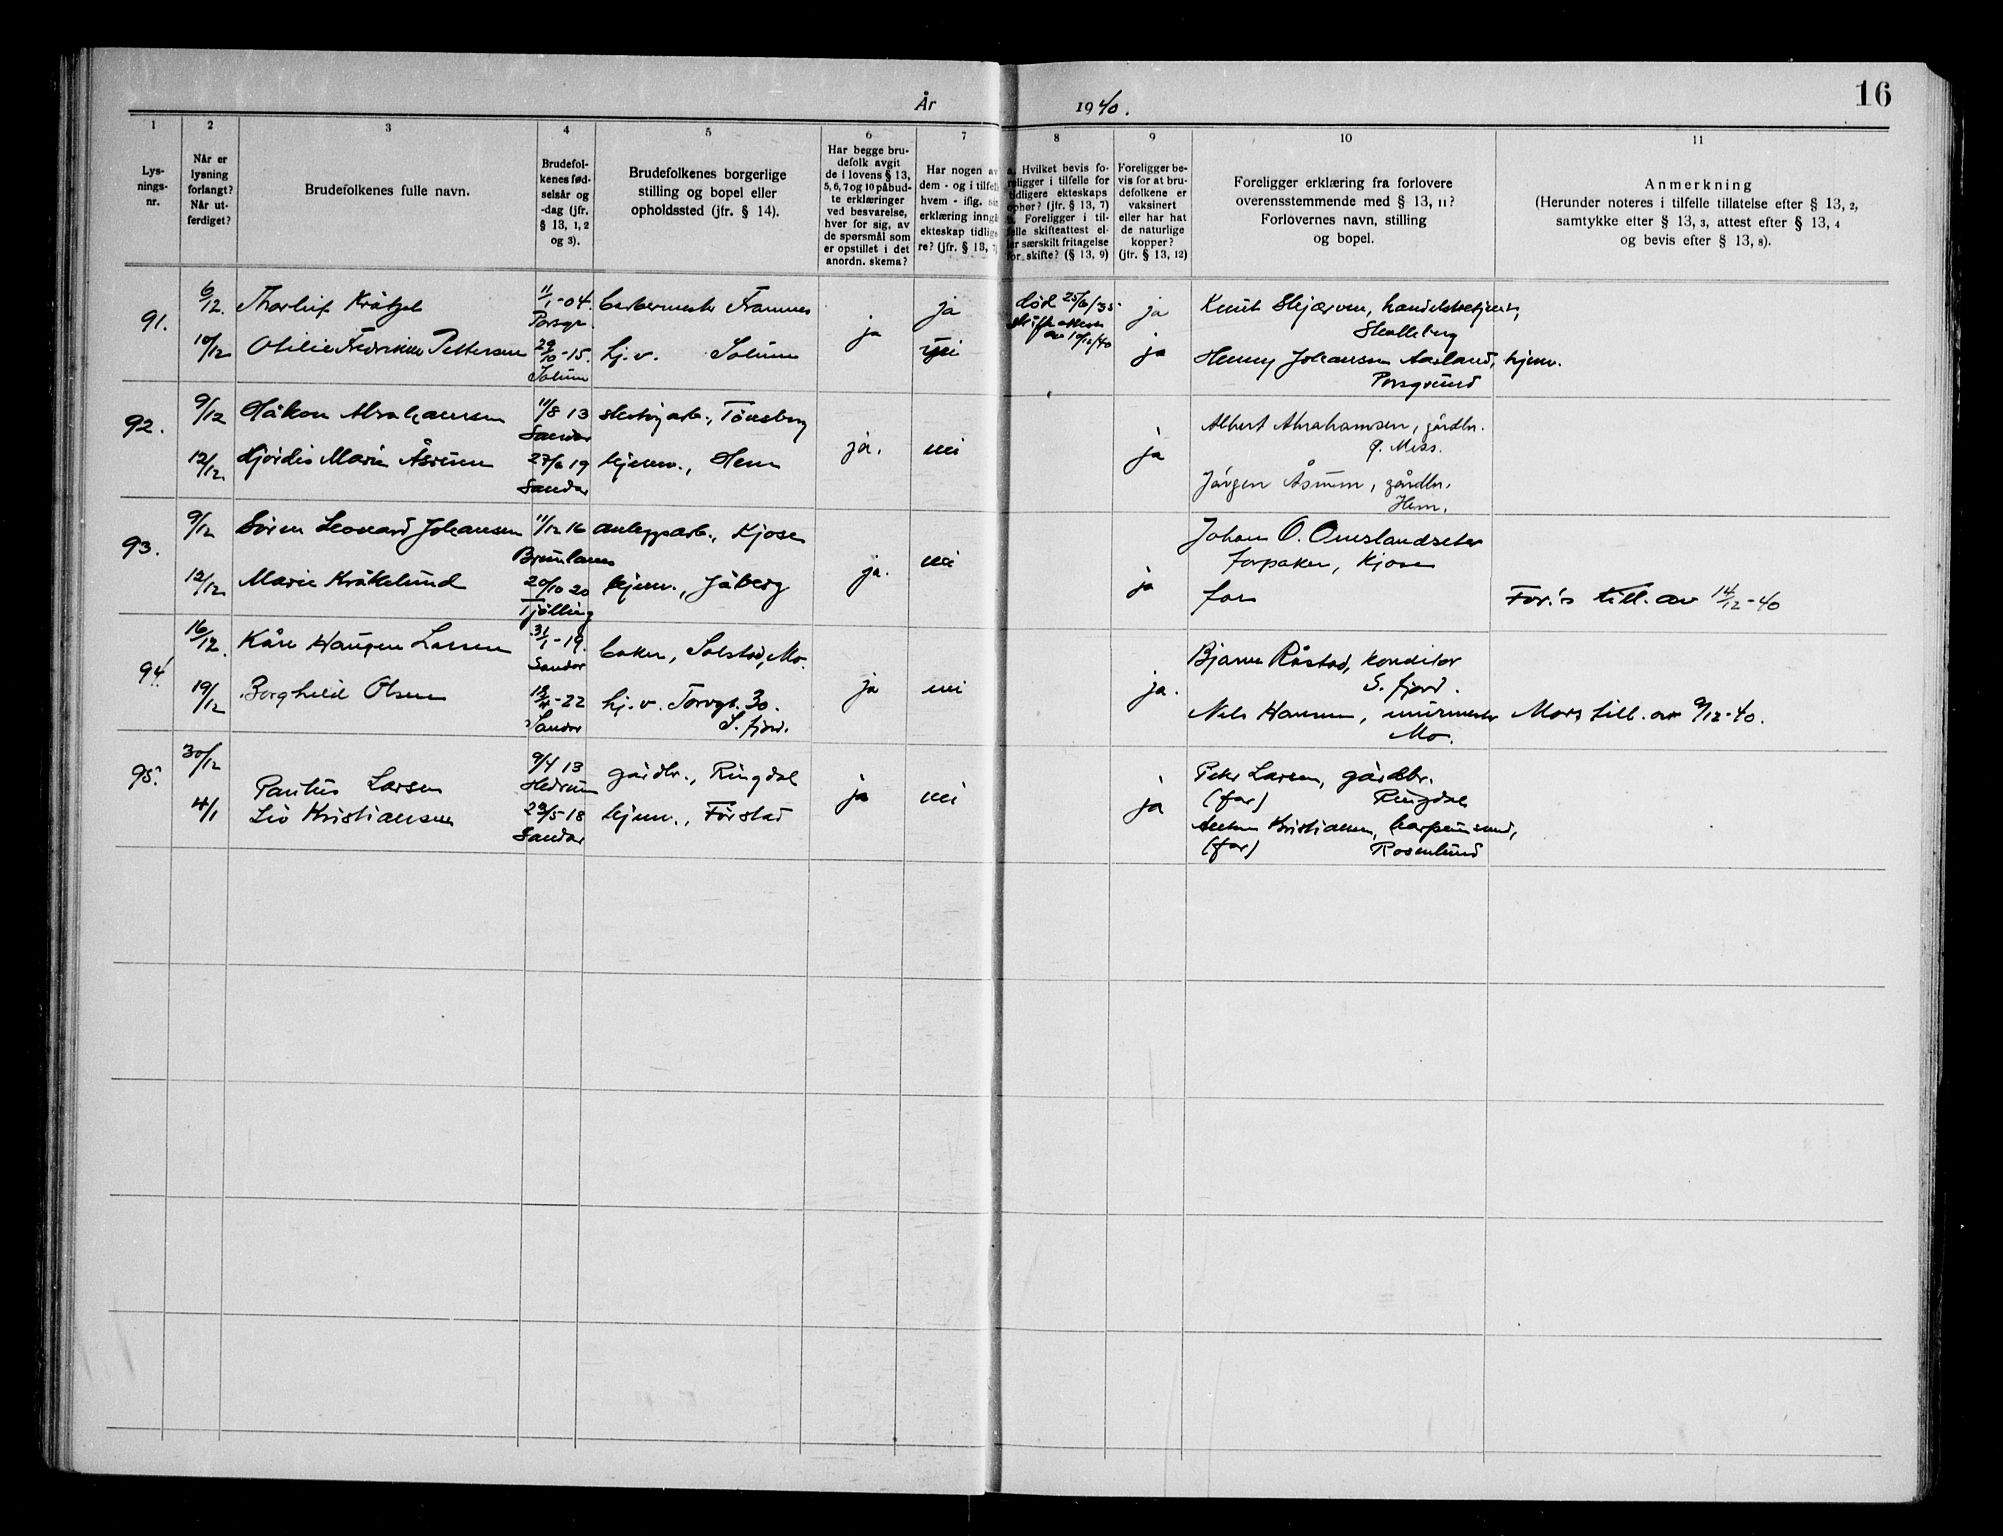 16
År 1940.
1 2 3 4 5 6 7 8 9 10 11
Lys-
nings-
nr.
Når er
lysning
forlangt?
Når ut-
ferdiget?
Brudefolkenes fulle navn.
Brudefol-
kenes fød-
selsår og
-dag (jfr.
§ 13, 1, 2
og 3).
Brudefolkenes borgerlige
stilling og bopel eller
opholdssted (jfr. § 14).
Har begge bru-
defolk avgit
de i lovens § 13,
5, 6, 7 og 10 påbud-
te erklæringer
ved besvarelse,
hver for sig, av
de spørsmål som
er opstillet i det
anordn. skema?
Har nogen av
dem - og i tilfelle
hvem - iflg. sin
erklæring inngå
ekteskap tidlige
re? (jfr. § 13, 7)
a. Hvilket bevis fo-
religger i tilfelle for
tidligere ekteskaps
ophør? (jfr. § 13, 7)
Foreligger i til-
felle skifteattest el-
ler særskilt fritagelse
for skifte? (§ 13, 9)
Foreligger be-
vis for at bru-
defolkene er
vaksinert
eller har hat
de naturlige
kopper?
(jfr. § 13, 12)
Foreligger erklæring fra forlovere
overensstemmende med § 13, 11?
Forlovernes navn, stilling
og bopel.
Anmerkning
(Herunder noteres i tilfelle tillatelse efter § 13, 2,
samtykke efter § 13, 3, attest efter § 13, 4
og bevis efter § 13, 8).
91.
6/12. Thorleif Krätzel 11/1-04. barbermester Framnes
Porsgr.
10/12 Otilie Fredrikke Pettersen 29/10-15. hj.v. Solum
Solum
ja
ja
nei
død 25/6/35
skifteattest
av 10/12/40
ja
ja
Knut Skjærven, handelsbetjent,
Skalleberg
Henny Johansen Aasland, hjemv.
Porsgrund
92.
9/12 Håkon Abrahamsen 11/8 13 Tønsberg
Sandar
12/12 Hjørdis Marie Åsrum 27/6 19 hjemv., Hem
Sandar
ja. nei ja
Albert Abrahamsen, gårdbr.
Ø. Miss.
Jörgen Åsrum, gårdbr.
Hem.
93.
9/12 Sören Leonard Johansen 11/12 16 anleggsarb., Kjose
Brunlanes
12/12 Marie Kråkelund 20/10 20 hjemv., Jåberg
Tjölling
ja. nei ja
Johan O. Omslandseter
forpakter, Kjose
far
For.s till. av 14/12-40
94.
16/12. Kåre Haugen Larsen 31/1-19. baker, Solstad, Mo.
Sandar
19/12 Borghild Olsen -22 hj.v. Torvgt. 30.
Sandar S. fjord.
ja nei ja.
Bjarne Råstad, konditor
S. fjord.
Nils Hansen, murmester
Mo.
Mors till. av 9/12-40.
95.
30/12 Paulus Larsen 9/4 13 gårdbr., Ringdal
Hedrum
4/1 Liv Kristiansen 23/5-18 hjemv., Förstad
Sandar
ja nei ja
Peter Larsen, gårdbr.
(far) Ringdal
Anton Kristiansen,
(far) Rosenlund